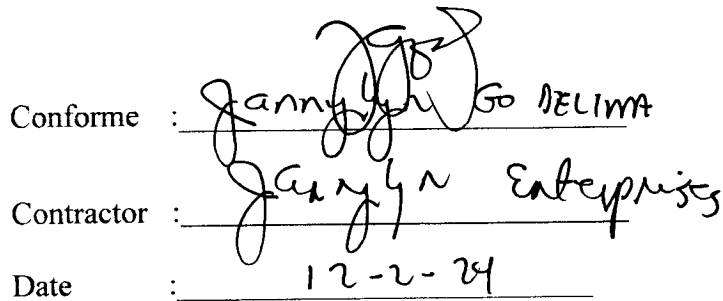 Conforme : Jannylyn Go DELIMA
Contractor : Jannylyn Enterprises
Date : 12-2-24